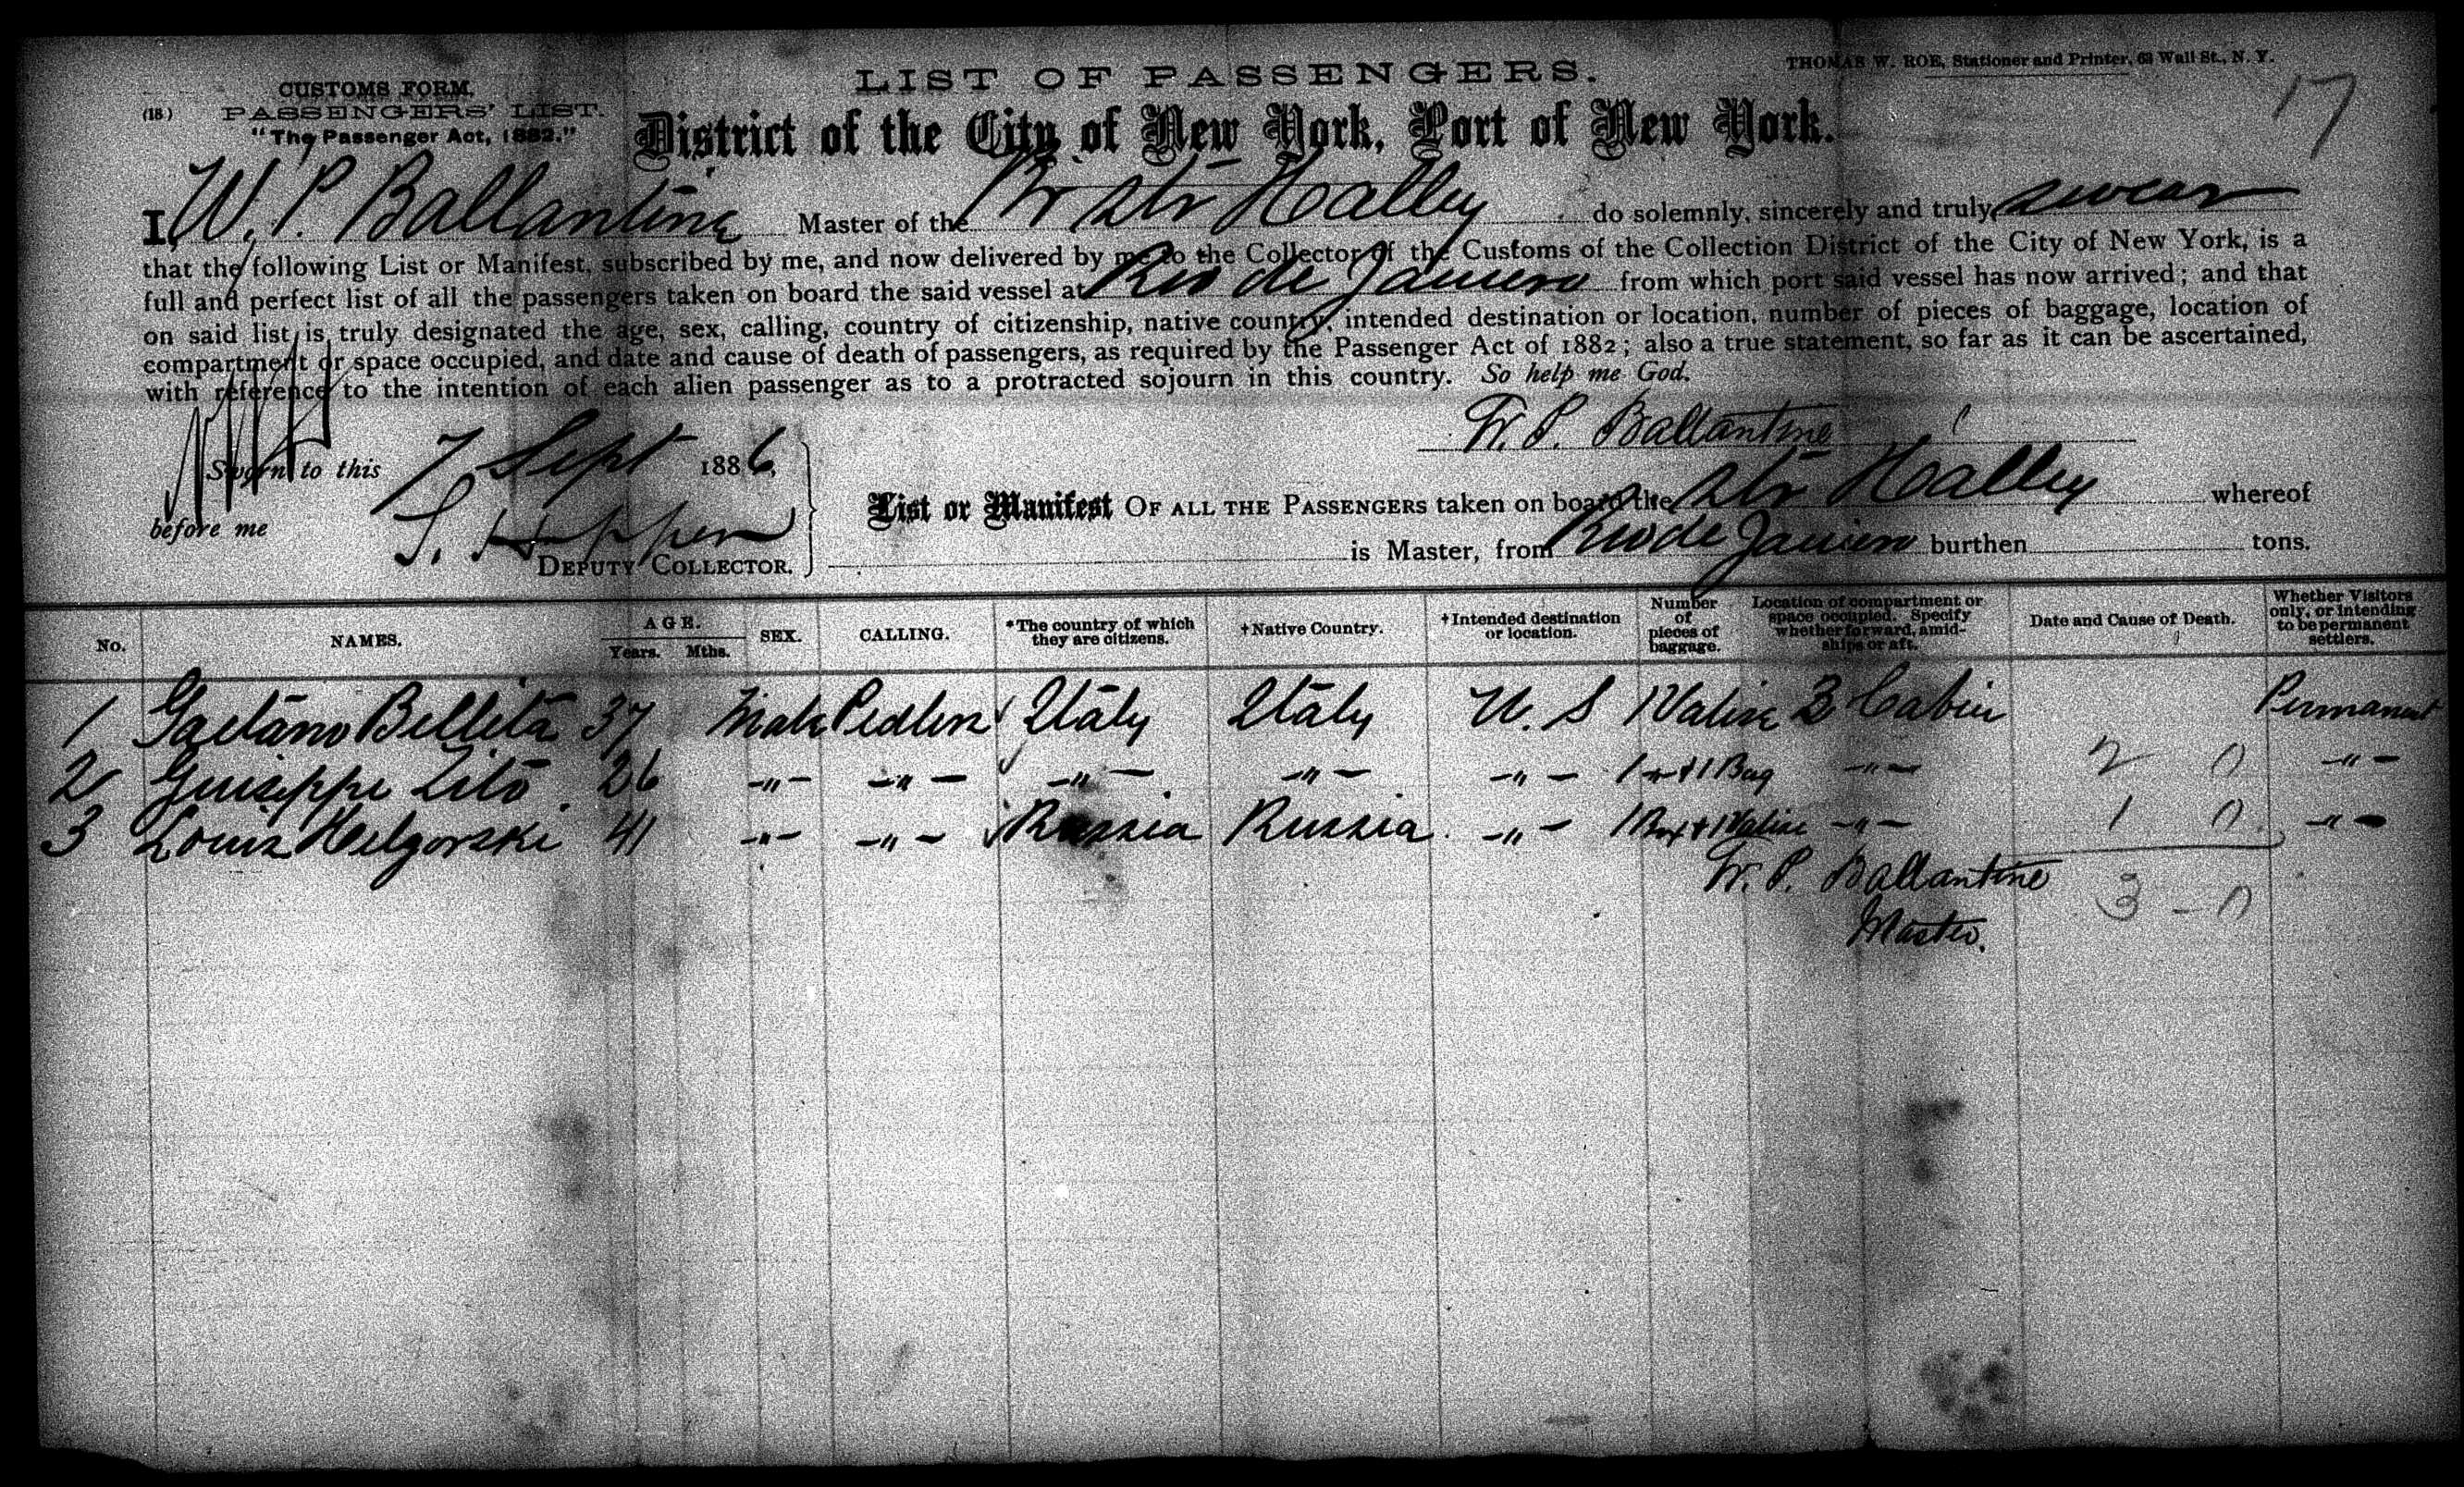 THOMAS W. ROE, Stationer and Printer, 63 Wall St., N. Y.
17
LIST OF PASSENGERS.
CUSTOMS FORM,
(18) PASSENGERS' LIST.
"The Passenger Act, 1882."
District of the City of New York, Port of New York.
I, W. P. Ballantine Master of the Br Str Halley do solemnly, sincerely and truly swear
that the following List or Manifest, subscribed by me, and now delivered by me to the Collector of the Customs of the Collection District of the City of New York, is a
full and perfect list of all the passengers taken on board the said vessel at Rio de Janiero from which port said vessel has now arrived; and that
on said list is truly designated the age, sex, calling, country of citizenship, native country, intended destination or location, number of pieces of baggage, location of
compartment or space occupied, and date and cause of death of passengers, as required by the Passenger Act of 1882; also a true statement, so far as it can be ascertained,
with reference to the intention of each alien passenger as to a protracted sojourn in this country. So help me God.
W. P. Ballantine
Sworn to this 7 Sept 1886,
before me
DEPUTY COLLECTOR.
List or Manifest OF ALL THE PASSENGERS taken on board the Str Halley whereof
is Master, from Rio de Janiero burthen tons.
No. NAMES. AGE. Years. Mths. SEX. CALLING. *The country of which they are citizens. †Native Country. †Intended destination or location. Number of pieces of baggage. Location of compartment or space occupied. Specify whether forward, amidships or aft. Date and Cause of Death. Whether Visitors only, or intending to be permanent settlers.
1 Gaetano Bellita 37 Male Pedler Italy Italy U. S 1 Valise 2 Cabin Permanent
2 Guiseppe Zito 26 -"- -"- -"- -"- -"- 1 -"- + 1 Bag -"- 2 0 -"-
3 Louis Helgorski 41 -"- -"- Russia Russia -"- 1 Box + 1 Valise -"- 1 0 -"-
W. P. Ballantine
3 - 0
Master.